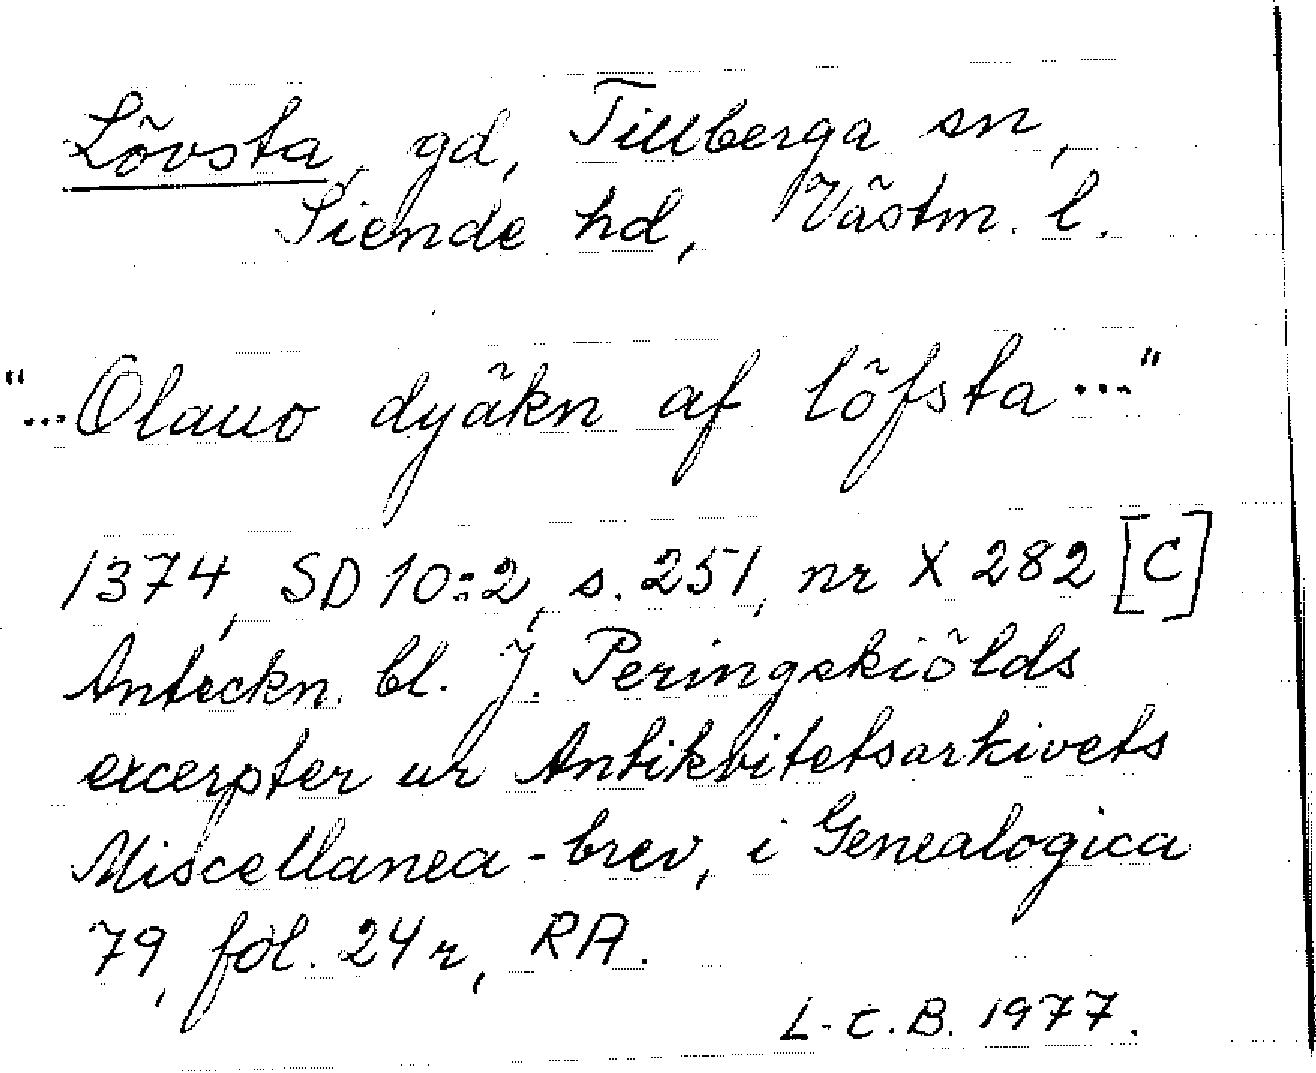 Lövsta, gd, Tillberga sn,
Siende hd, Västm. l.
"...Olauo dyäkn af löfsta..."
1374, SD 10:2, s. 251, nr X 282 [C]
Anteckn. bl. J. Peringskiölds
excerpter ur Antikvitetsarkivets
Miscellanea-brev, i Genealogica
79, fol. 24 r, RA.
L-E.B. 1977.